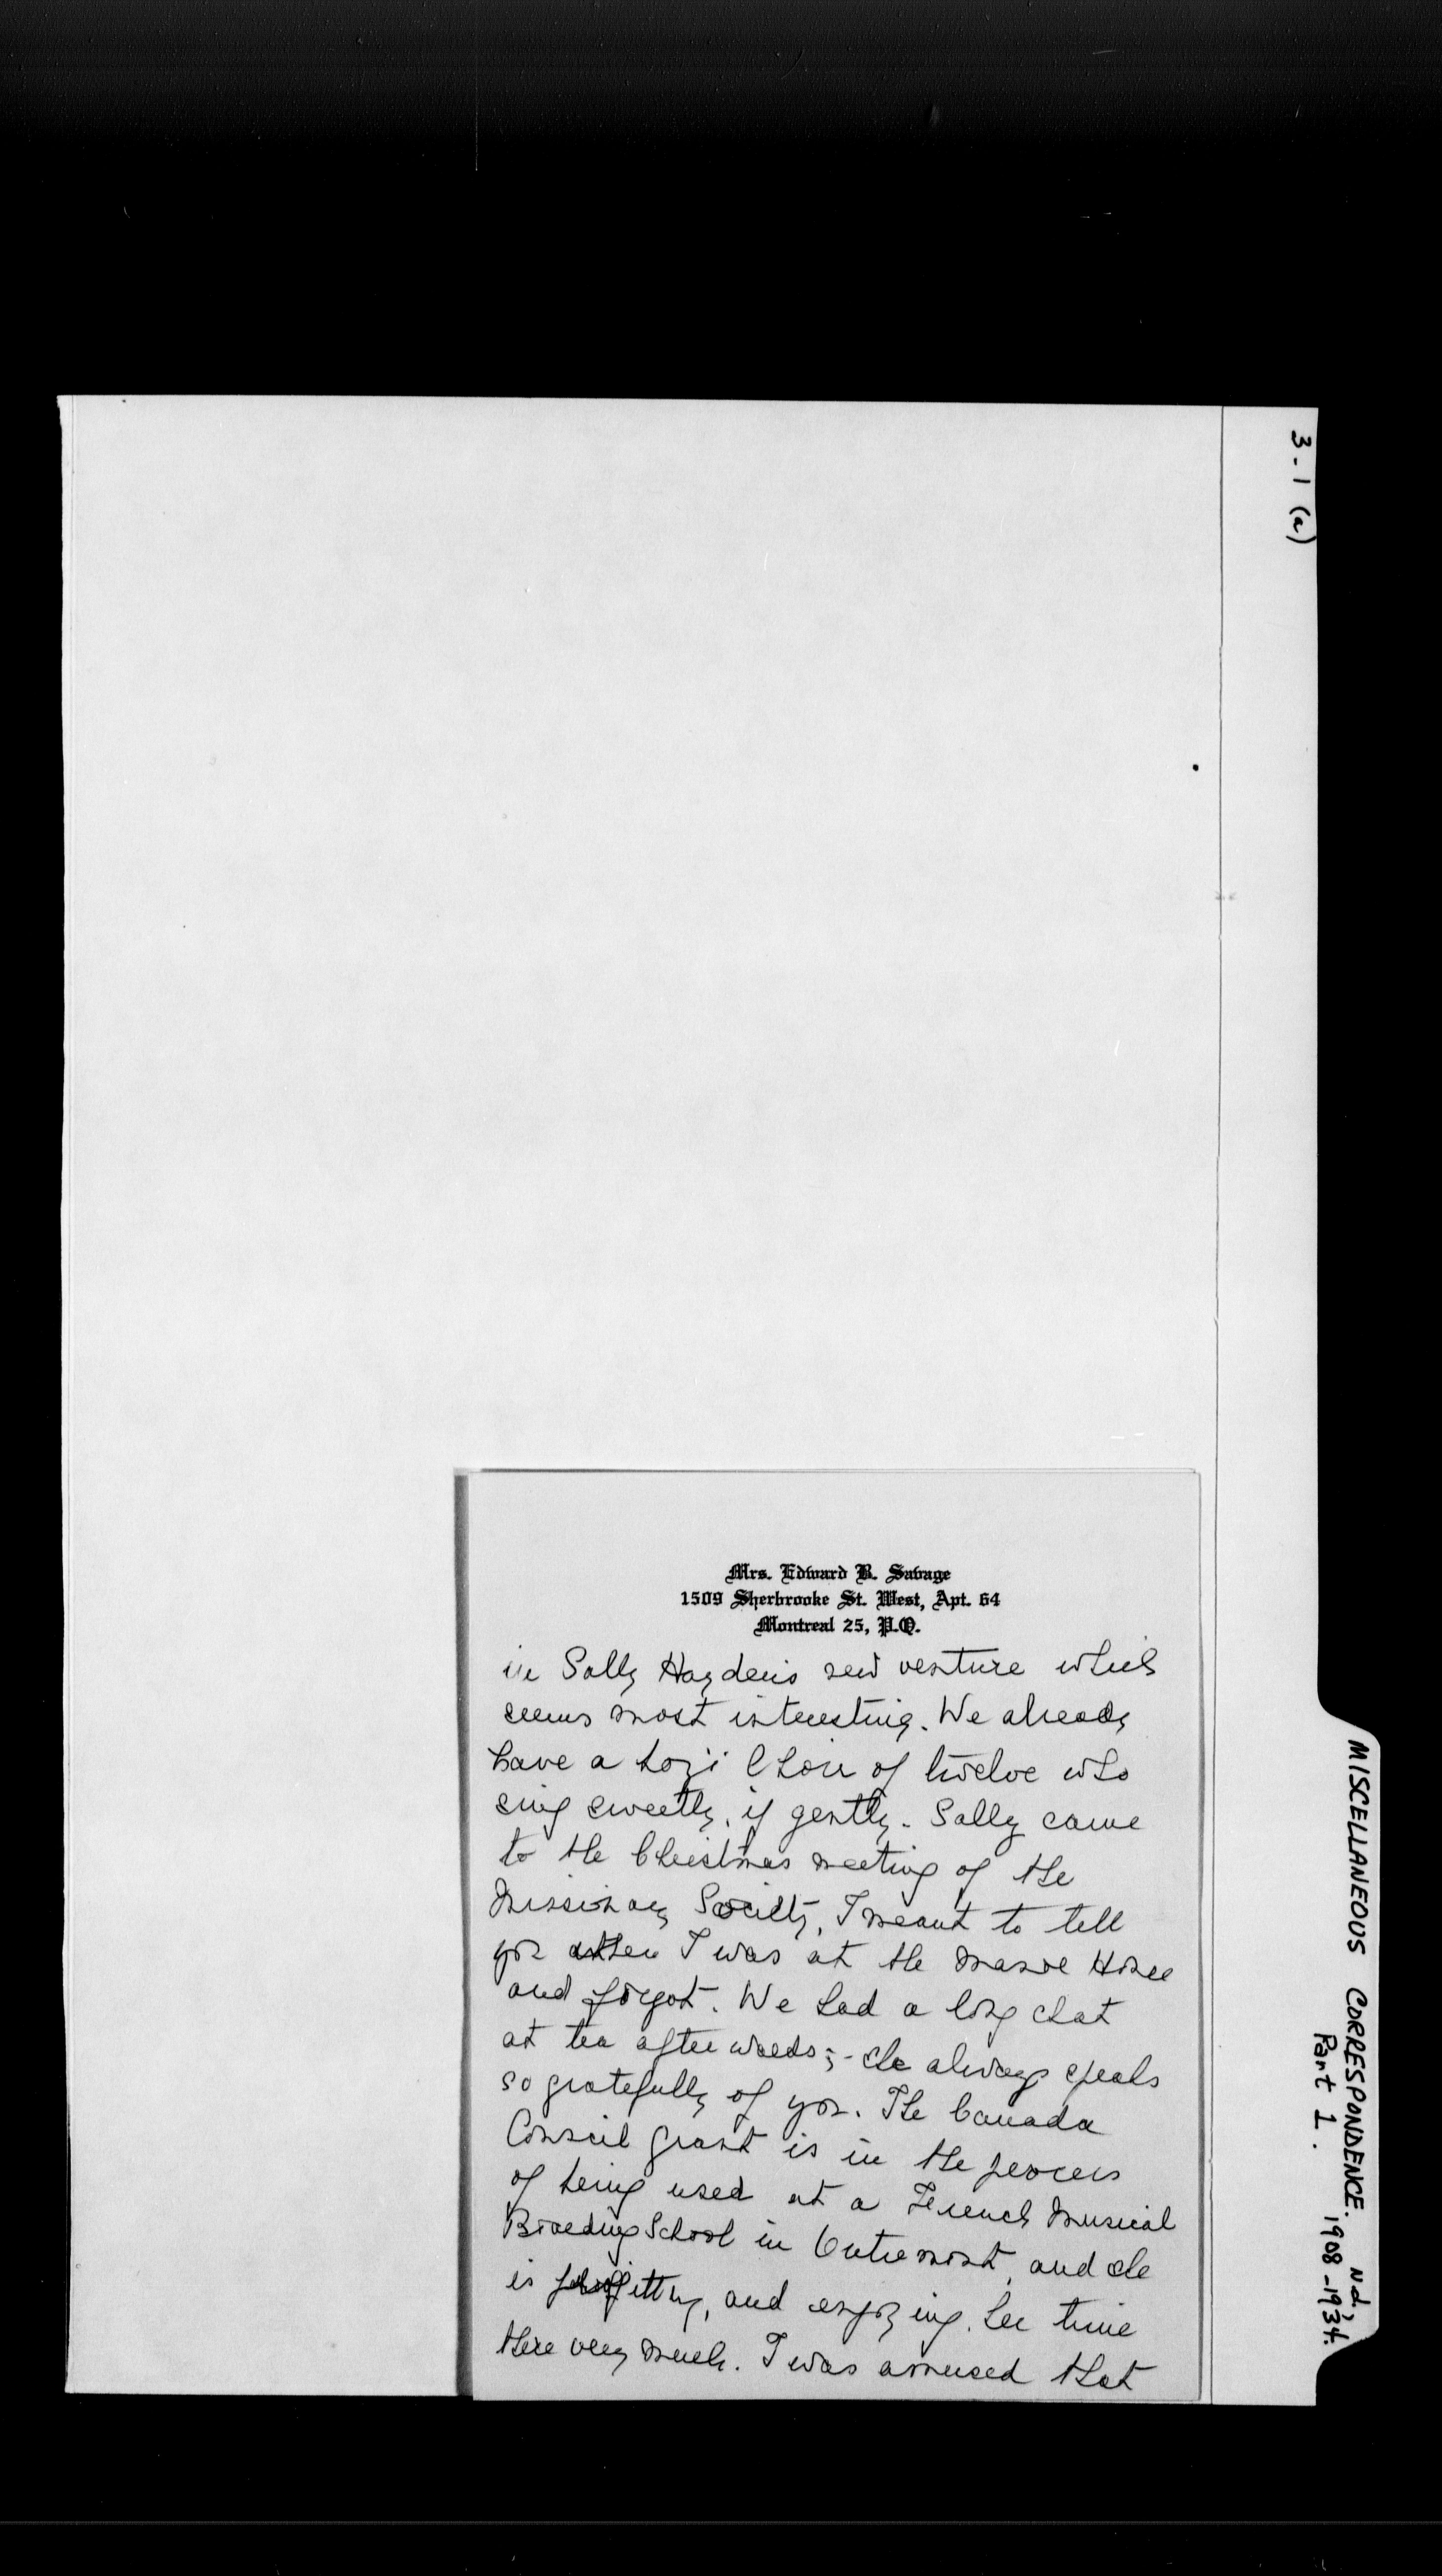 3-1 (a)
MISCELLANEOUS CORRESPONDENCE. n.d., 1908-1934.
Part 1.
Mrs. Edward B. Savage
1509 Sherbrooke St. West, Apt. 64
Montreal 25, P.Q.
in Sally Hayden's new venture which
seems most interesting. We already
have a choir of twelve who
sing sweetly, if gently. Sally came
to the Christmas meeting of the
Missionary Society, I meant to tell
you when I was at the Manse
and forgot. We had a long chat
at tea afterwards;- she always speaks
so gratefully of you. The Canada
Council grant is in the process
of being used at a French Musical
Boarding School in Outremont, and she
is and enjoying her time
there very much. I was amused that